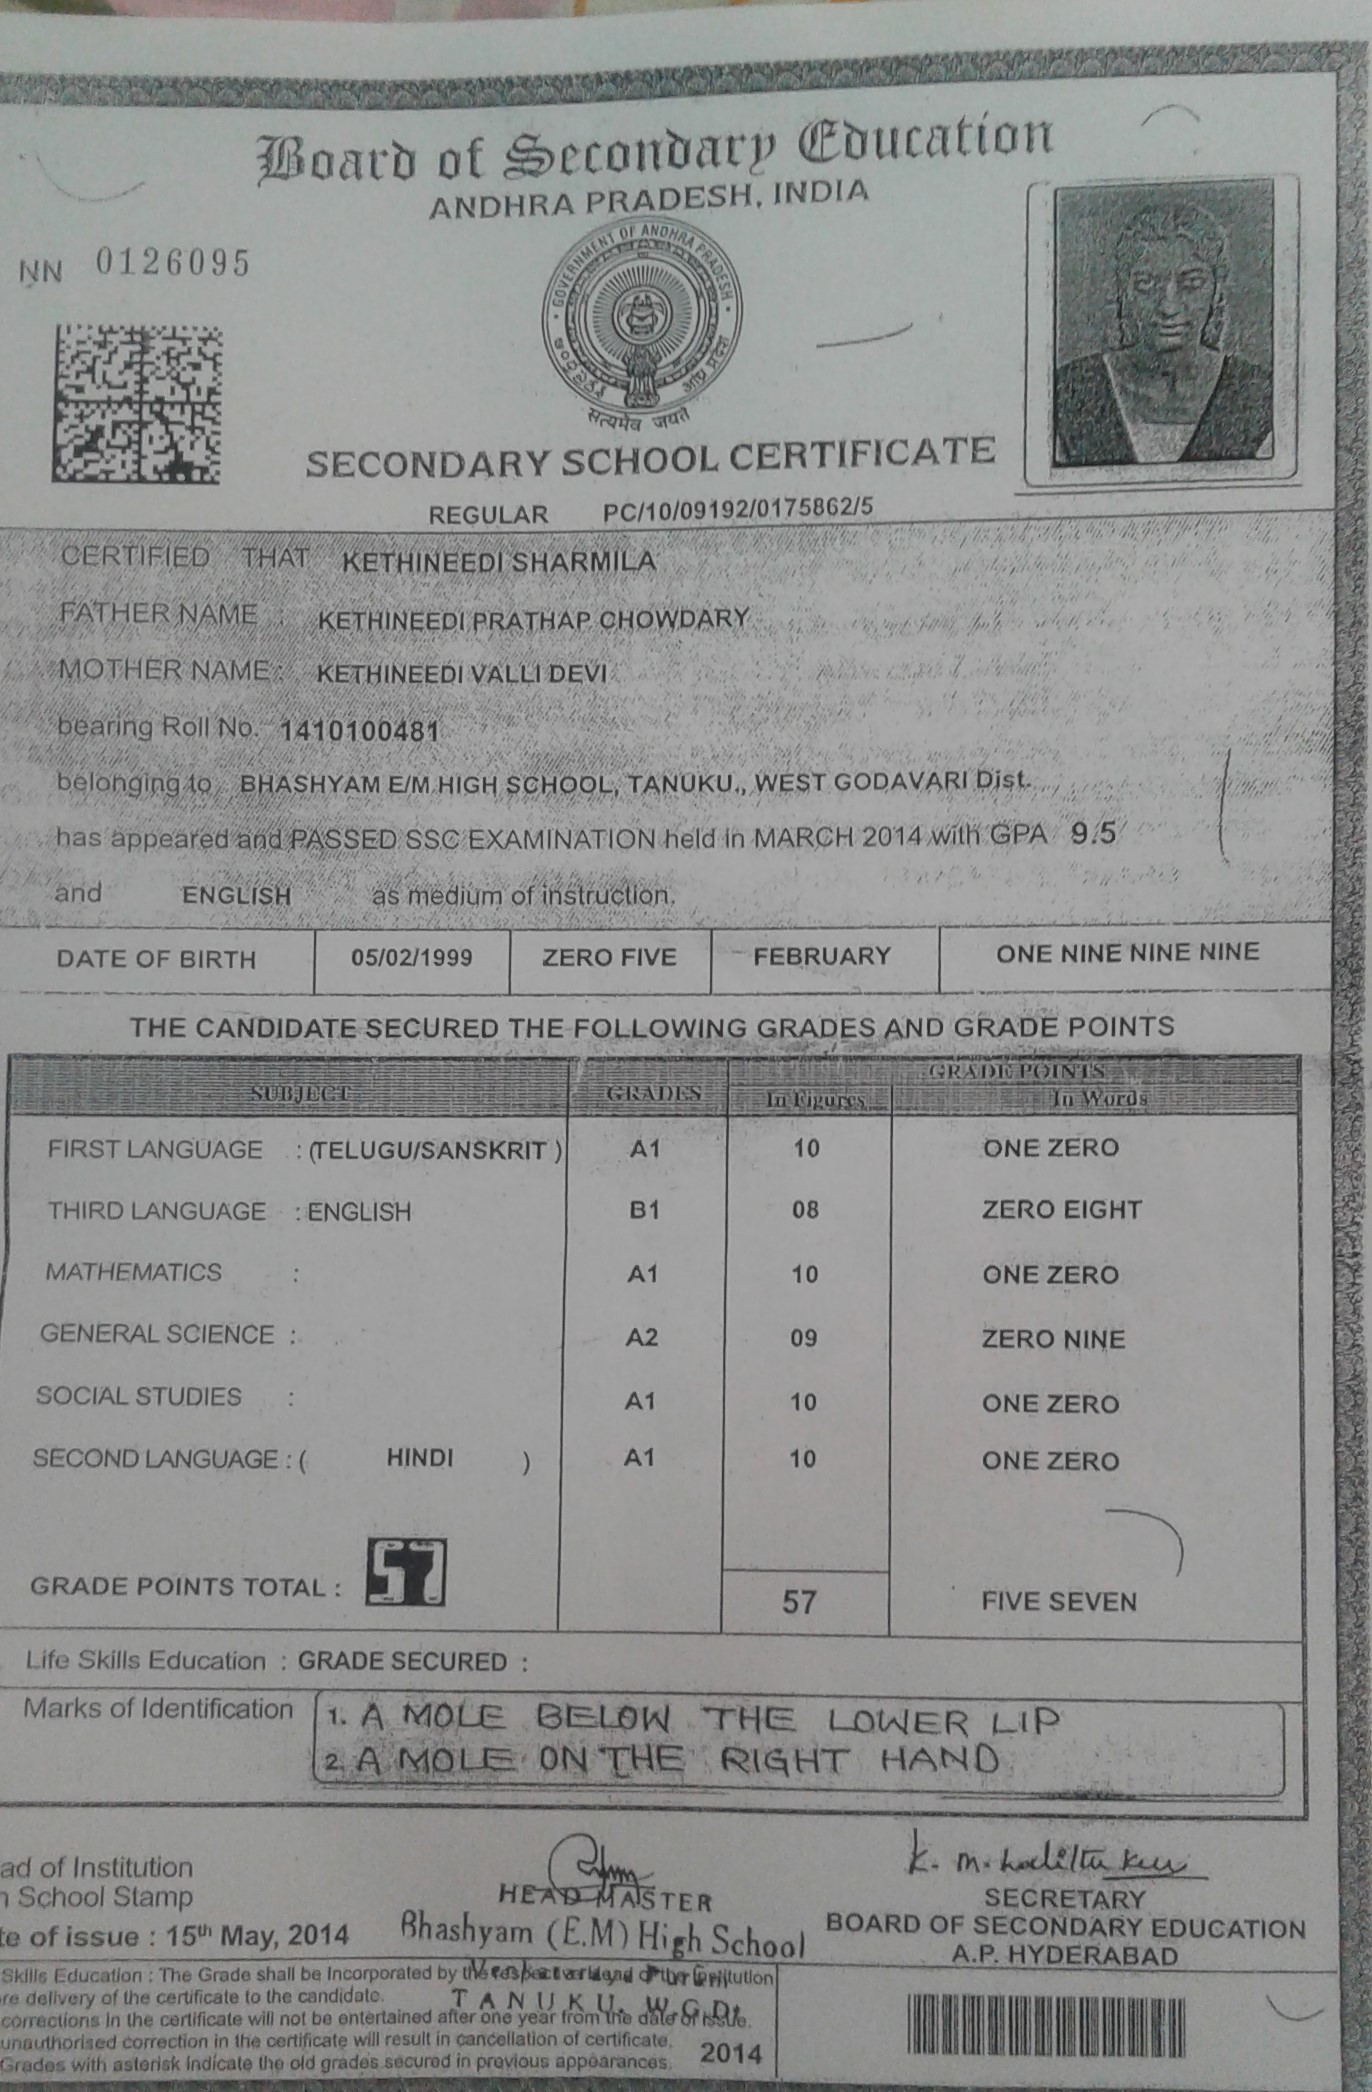 Board of Secondary Education
ANDHRA PRADESH, INDIA
NN 0126095
GOVERNMENT OF ANDHRA PRADESH
आंध्र प्रदेश
सत्यमेव जयते
SECONDARY SCHOOL CERTIFICATE
REGULAR PC/10/09192/0175862/5
CERTIFIED THAT KETHINEEDI SHARMILA
FATHER NAME : KETHINEEDI PRATHAP CHOWDARY
MOTHER NAME : KETHINEEDI VALLI DEVI
bearing Roll No. 1410100481
belonging to BHASHYAM E/M HIGH SCHOOL, TANUKU., WEST GODAVARI Dist.
has appeared and PASSED SSC EXAMINATION held in MARCH 2014 with GPA 9.5
and ENGLISH as medium of instruction.
DATE OF BIRTH 05/02/1999 ZERO FIVE FEBRUARY ONE NINE NINE NINE
THE CANDIDATE SECURED THE FOLLOWING GRADES AND GRADE POINTS
SUBJECT GRADES GRADE POINTS
In Figures In Words
FIRST LANGUAGE : (TELUGU/SANSKRIT ) A1 10 ONE ZERO
THIRD LANGUAGE : ENGLISH B1 08 ZERO EIGHT
MATHEMATICS : A1 10 ONE ZERO
GENERAL SCIENCE : A2 09 ZERO NINE
SOCIAL STUDIES : A1 10 ONE ZERO
SECOND LANGUAGE : ( HINDI ) A1 10 ONE ZERO
GRADE POINTS TOTAL : 57 57 FIVE SEVEN
Life Skills Education : GRADE SECURED :
Marks of Identification 1. A MOLE BELOW THE LOWER LIP
2. A MOLE ON THE RIGHT HAND
ad of Institution
School Stamp
te of issue : 15th May, 2014
HEAD MASTER
Bhashyam (E.M) High School
TANUKU. W.G.Dt.
SECRETARY
BOARD OF SECONDARY EDUCATION
A.P. HYDERABAD
Skills Education : The Grade shall be Incorporated by the
re delivery of the certificate to the candidate.
corrections in the certificate will not be entertained after one year from the date of issue.
unauthorised correction in the certificate will result in cancellation of certificate.
Grades with asterisk indicate the old grades secured in previous appearances. 2014